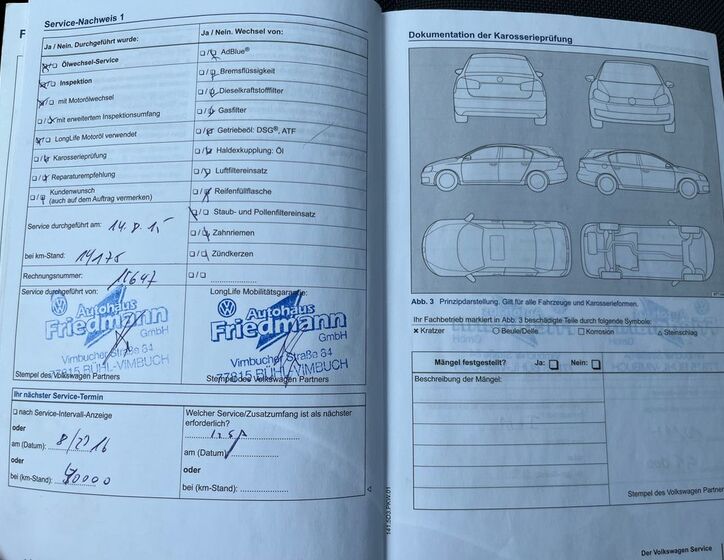 Service-Nachweis 1
Ja / Nein. Durchgeführt wurde:
Ölwechsel-Service
Inspektion
mit Motorölwechsel
mit erweitertem Inspektionsumfang
LongLife Motoröl verwendet
Karosserieprüfung
Reparaturempfehlung
Kundenwunsch
(auch auf dem Auftrag vermerken)
Service durchgeführt am:
bei km-Stand: 14175
Rechnungsnummer: 15647
Service durchgeführt von:
Autohaus
Friedmann
GmbH
Vimbucher Straße 64
77815 BÜHL-VIMBUCH
Stempel des Volkswagen Partners
Ja / Nein. Wechsel von:
AdBlue®
Bremsflüssigkeit
Dieselkraftstofffilter
Gasfilter
Getriebeöl: DSG®, ATF
Haldexkupplung: Öl
Luftfiltereinsatz
Reifenfüllflasche
Staub- und Pollenfiltereinsatz
Zahnriemen
Zündkerzen
LongLife Mobilitätsgarantie:
Autohaus
Friedmann
GmbH
Vimbucher Straße 64
77815 BÜHL-VIMBUCH
Stempel des Volkswagen Partners
Ihr nächster Service-Termin
nach Service-Intervall-Anzeige
oder
am (Datum):
oder
bei (km-Stand):
Welcher Service/Zusatzumfang ist als nächster
erforderlich?
Insp
am (Datum)
oder
bei (km-Stand):
Dokumentation der Karosserieprüfung
Abb. 3 Prinzipdarstellung. Gilt für alle Fahrzeuge und Karosserieformen.
Ihr Fachbetrieb markiert in Abb. 3 beschädigte Teile durch folgende Symbole:
× Kratzer ○ Beule/Delle □ Korrosion △ Steinschlag
Mängel festgestellt? Ja: Nein:
Beschreibung der Mängel:
Stempel des Volkswagen Partner
141.5D3.PKW.01
Der Volkswagen Service